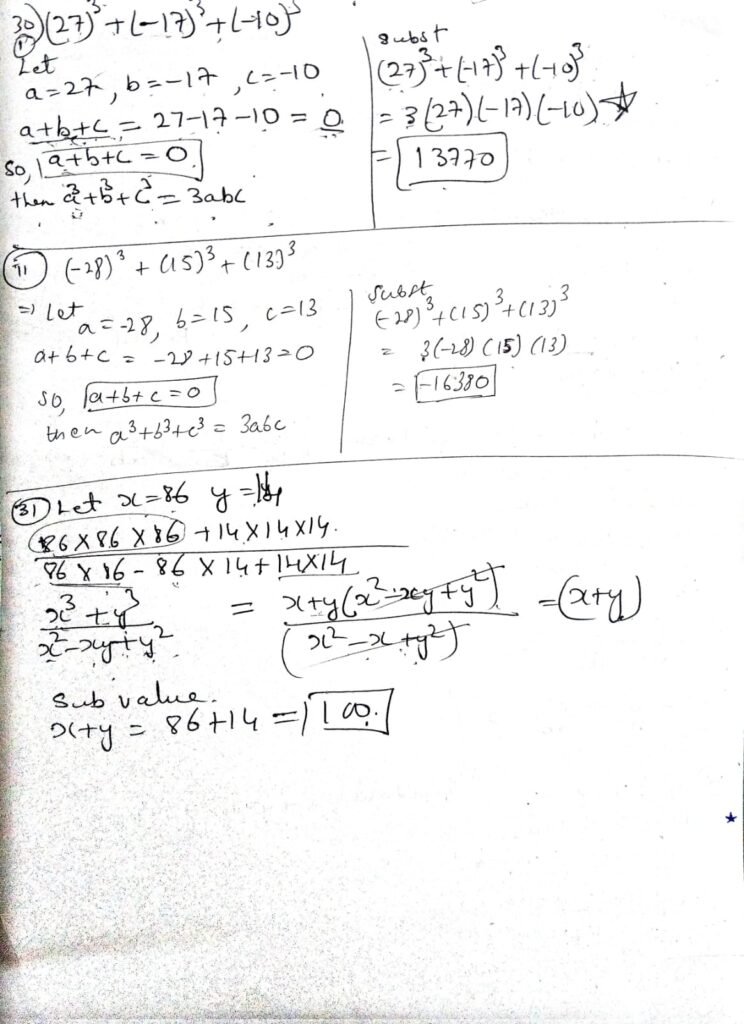 30) (27)³ + (-17)³ + (-10)³
i) Let
a=27, b=-17, c=-10
a+b+c = 27-17-10 = 0
So, a+b+c = 0
then a³+b³+c³ = 3abc
subst
(27)³ + (-17)³ + (-10)³
= 3(27)(-17)(-10) ☆
= 13770
ii) (-28)³ + (15)³ + (13)³
⇒ Let a=-28, b=15, c=13
a+b+c = -28+15+13=0
so, a+b+c = 0
then a³+b³+c³ = 3abc
Subst
(-28)³+(15)³+(13)³
= 3(-28) (15) (13)
= -16380
31) Let x=86 y=14
86 X 86 X 86 + 14 X 14 X 14.
86 X 86 - 86 X 14 + 14X14
x³ + y³ = x+y(x²-xy+y²) = (x+y)
x²-xy+y² (x²-x+y²)
Sub value.
x+y = 86+14 = 100.
★